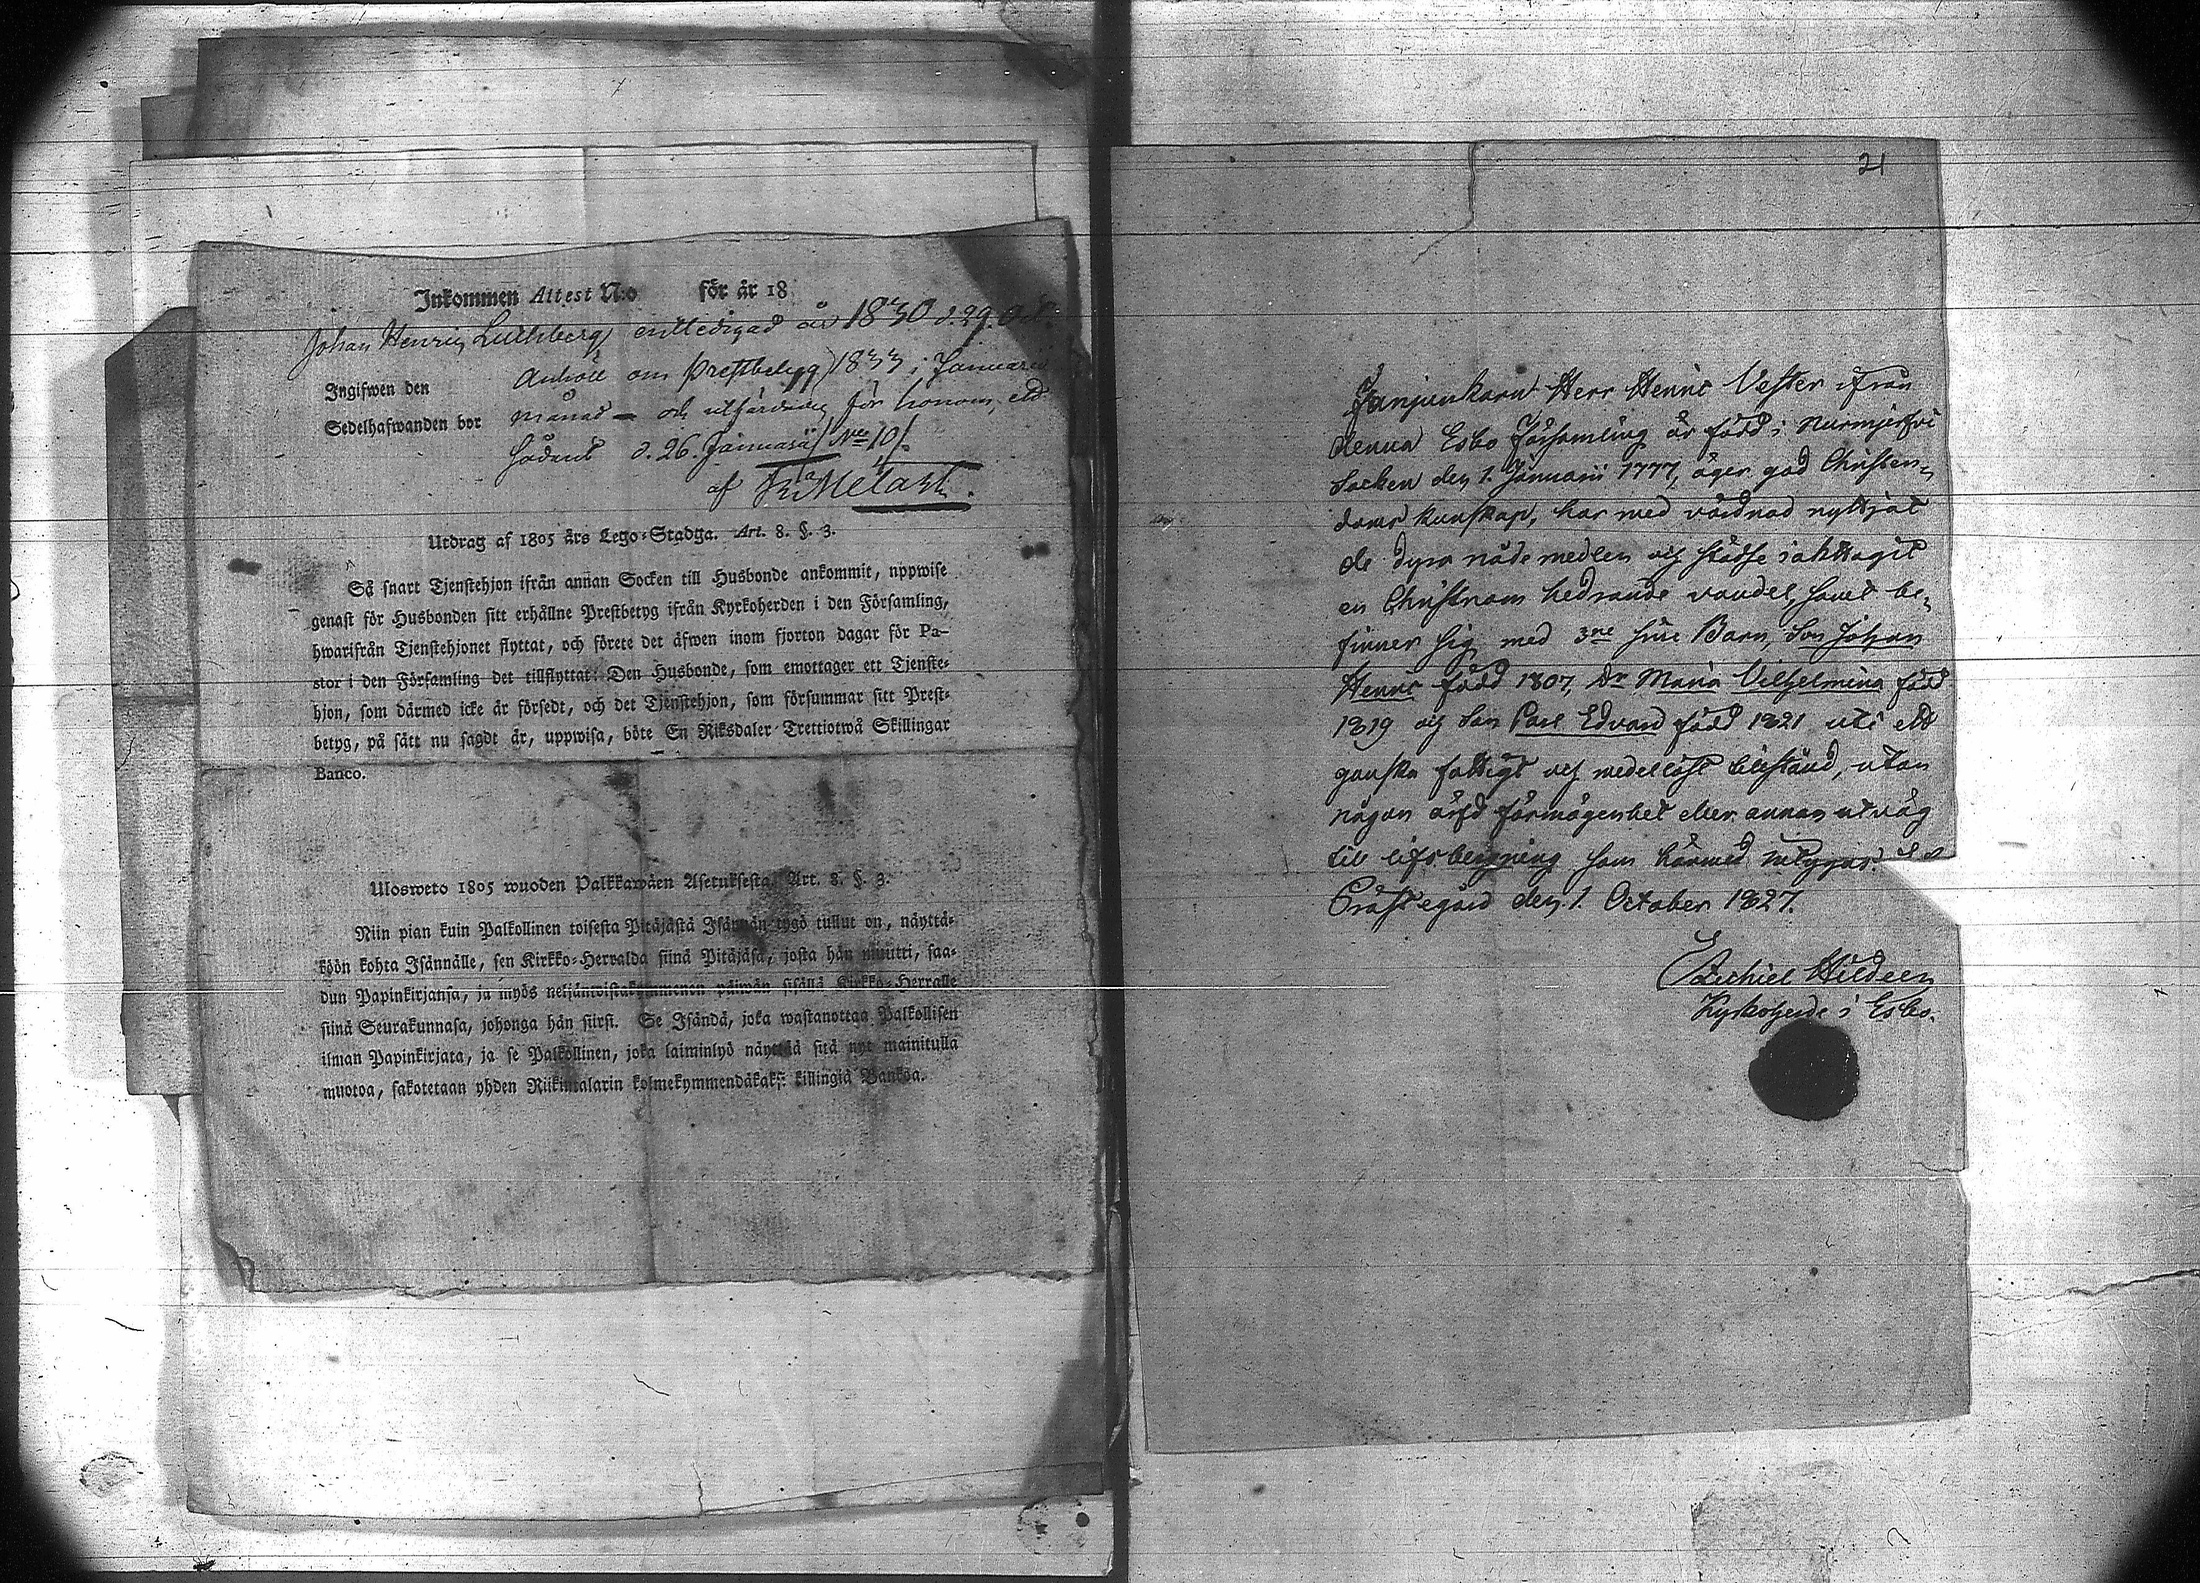 Inkommen Attest N:o för år 18
Johan Henric Luchberg entledigad år 1830 d. 29. Oct.
Anhöll om Prestbetyg 1833 i Januarii
Ingifwen den
månad – och utfärdades för honom ett
Sedelhafwanden bor
sådant d. 26. Januarii Nro 10/.
af
Utdrag af 1805 års Lego-Stadga. Art. 8. §. 3.
Så snart Tjenstehjon ifrån annan Socken till Husbonde ankommit, uppwise
genast för Husbonden sitt erhållne Prestbetyg ifrån Kyrkoherden i den Församling,
hwarifrån Tjenstehjonet flyttat, och förete det äfwen inom fjorton dagar för Pa-
stor i den Församling det tillflyttat: Den Husbonde, som emottager ett Tjenste-
hjon, som därmed icke är försedt, och det Tjenstehjon, som försummar sitt Prest-
betyg, på sätt nu sagdt är, uppwisa, böte En Riksdaler Trettiotwå Skillingar
Banco.
Ulosweto 1805 wuoden Palkkawäen Asetuksesta. Art. 8. §. 3.
Niin pian kuin Palkollinen toisesta Pitäjästä Isännän tygö tullut on, näyttä-
köön kohta Isännälle, sen Kirkko-Herralda siinä Pitäjäsä, josta hän muutti, saa-
dun Papinkirjansa, ja myös neljäntoistakymmenen päiwän sisällä Kirkko-Herralle
siinä Seurakunnasa, johonga hän siirsi. Se Isändä, joka wastanottaa Palkollisen
ilman Papinkirjata, ja se Palkollinen, joka laiminlyö näyttää sitä nyt mainitulla
muotoa, sakotetaan yhden Riikintalarin kolmekymmendäkaksi killingiä Bankoa.
21
Junjunkarn Herr Henric Vester ifrån
denna Esbo Församling är född i Nurmijerfvi
Socken den 1. Januarii 1777, äger god Christen-
doms kunskap, har med vördnad nyttjat
de dyra nådemedlen och städse iakttagit
en Christnom hedrande vandel, samt be-
finner sig med 3ne sine Barn, Son Johan
Henric född 1807, Dr Maria Vilhelmina född
1819 och Son Carl Edvard född 1821 uti ett
ganska fattigt och medellöst tillstånd, utan
någon ärfd förmögenhet eller annan utväg
till lifsbergning som härmed intygas.
Prästegård den 1. October 1827.
Ezechiel Hildeen
Kyrkoherde i Esbo.